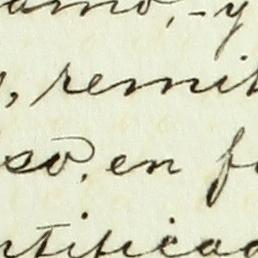 amo, - y
, remit
so, en f
rtificad